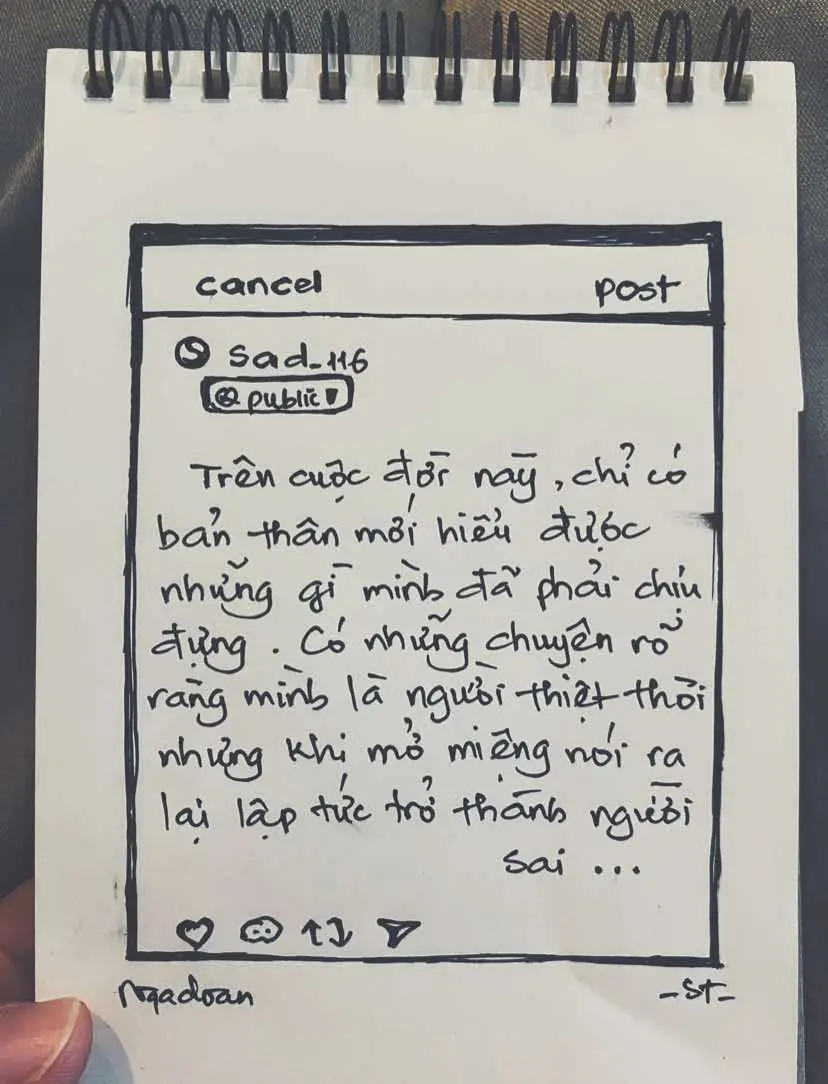 cancel post
sad_116
public
Trên cuộc đời này, chỉ có
bản thân mới hiểu được
những gì mình đã phải chịu
đựng. Có những chuyện rõ
ràng mình là người thiệt thòi
nhưng khi mở miệng nói ra
lại lập tức trở thành người
sai ...
Ngadoan -ST-